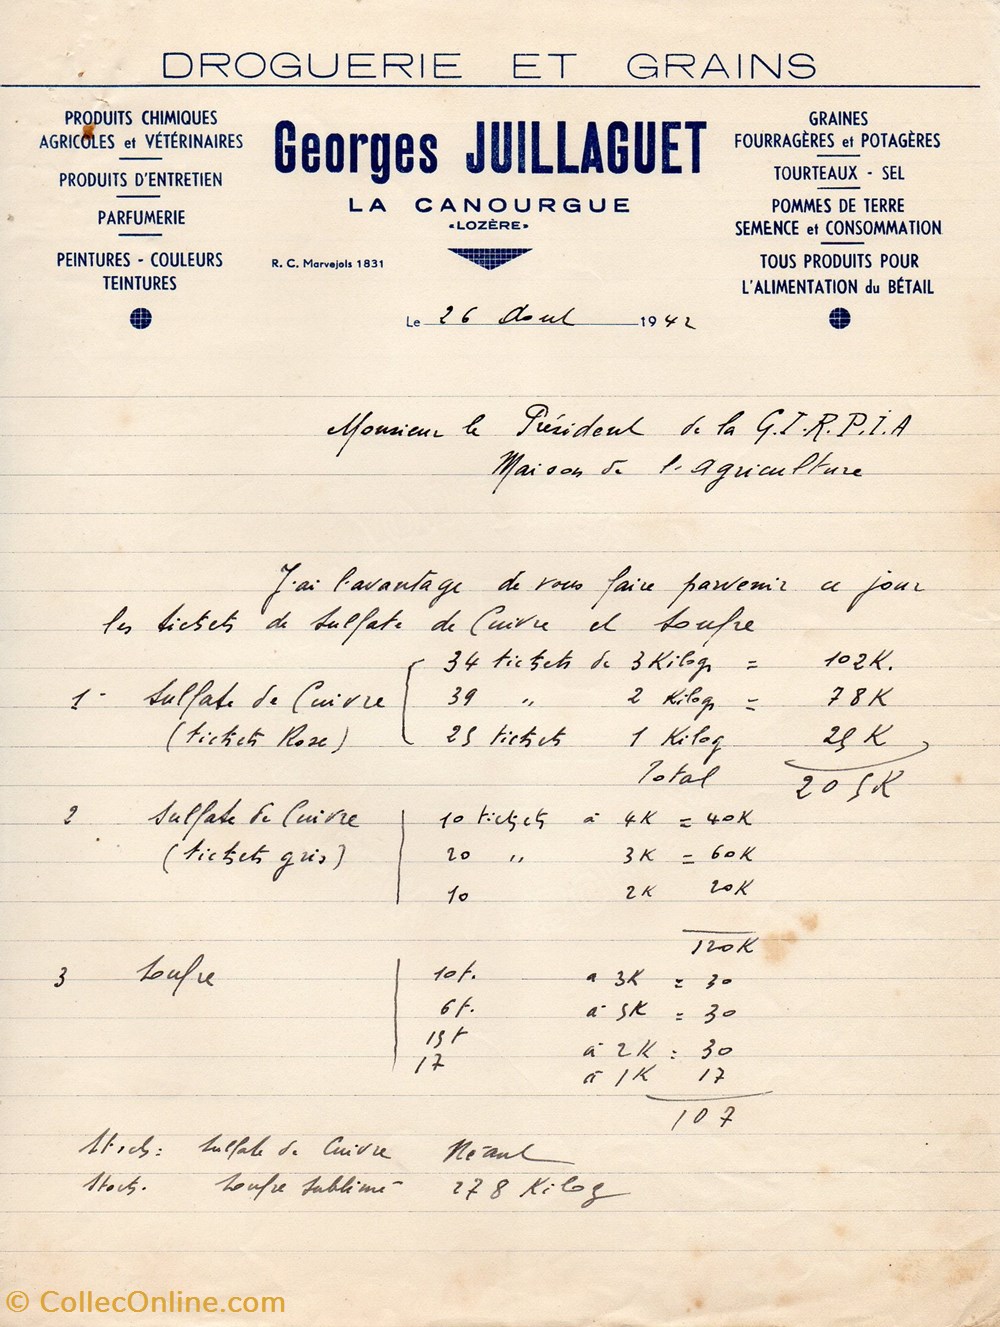 DROGUERIE ET GRAINS
PRODUITS CHIMIQUES
AGRICOLES et VÉTÉRINAIRES
PRODUITS D'ENTRETIEN
PARFUMERIE
PEINTURES - COULEURS
TEINTURES
Georges JUILLAGUET
LA CANOURGUE
«LOZÈRE»
R. C. Marvejols 1831
GRAINES
FOURRAGÈRES et POTAGÈRES
TOURTEAUX - SEL
POMMES DE TERRE
SEMENCE et CONSOMMATION
TOUS PRODUITS POUR
L'ALIMENTATION du BÉTAIL
Le 26 Aout 1942
Monsieur le Président de la G.I.R.P.I.A
Maison de l'agriculture
J'ai l'avantage de vous faire parvenir ce jour
les tickets de sulfate de Cuivre et soufre
34 tickets de 3 Kilogs = 102K.
1- Sulfate de Cuivre 39 " 2 Kilogs = 78K
(tickets Rose) 25 tickets 1 Kilog 25K
Total 205K
2 Sulfate de Cuivre 10 tickets à 4K = 40K
(tickets gris) 20 " 3K = 60K
10 2K 20K
120K
3 Soufre 10t. a 3K = 30
6t. à 5K = 30
15t à 2K = 30
17 à 1K 17
107
Stock: Sulfate de Cuivre Néant
Stock. Soufre sublimé 278 Kilog
© CollecOnline.com